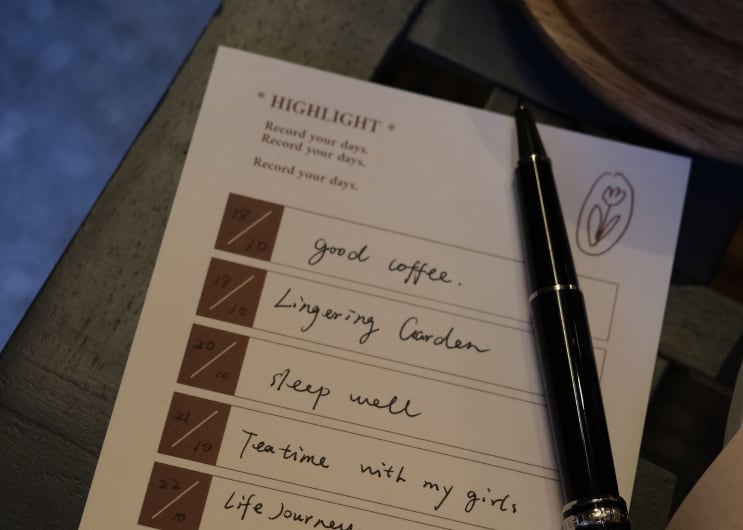 * HIGHLIGHT *
Record your days.
Record your days.
Record your days.
18/10 good coffee.
19/10 Lingering Garden
20/10 sleep well
21/10 Teatime with my girls
22/10 Life Journeys